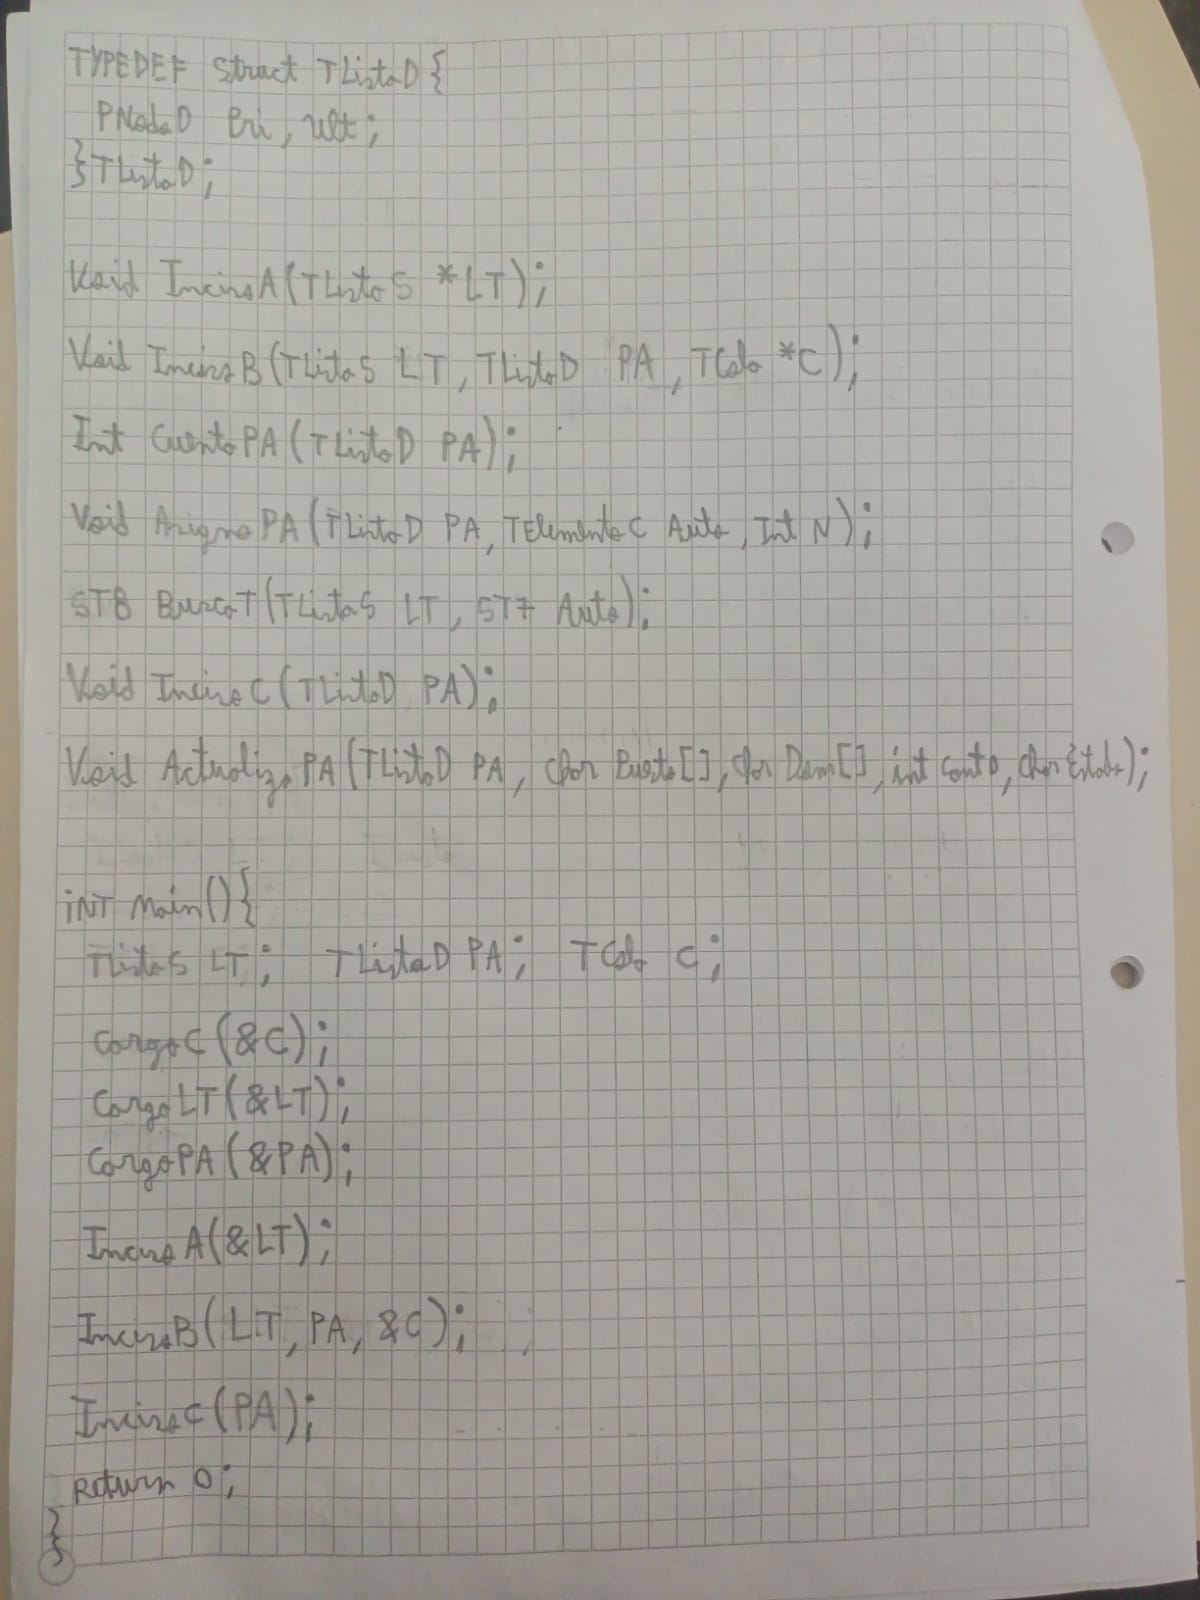 TYPEDEF Struct TListaD{
PNodoD Pri, ult;
}TListaD;
Void IncisoA(TListaS *LT);
Void IncisoB(TListaS LT, TListaD PA, TCola *C);
Int CuentaPA(TListaD PA);
Void AsignaPA(TListaD PA, TElementoC Auto, Int N);
ST8 BuscaT(TListaS LT, ST7 Auto);
Void IncisoC(TListaD PA);
Void ActualizaPA(TListaD PA, char Puesto[], char Dom[], int cont, char Estado);
iNT Main(){
TListaS LT; TListaD PA; TCola C;
CargaC(&C);
CargaLT(&LT);
CargaPA(&PA);
IncisoA(&LT);
IncisoB(LT, PA, &C);
IncisoC(PA);
Return 0;
}